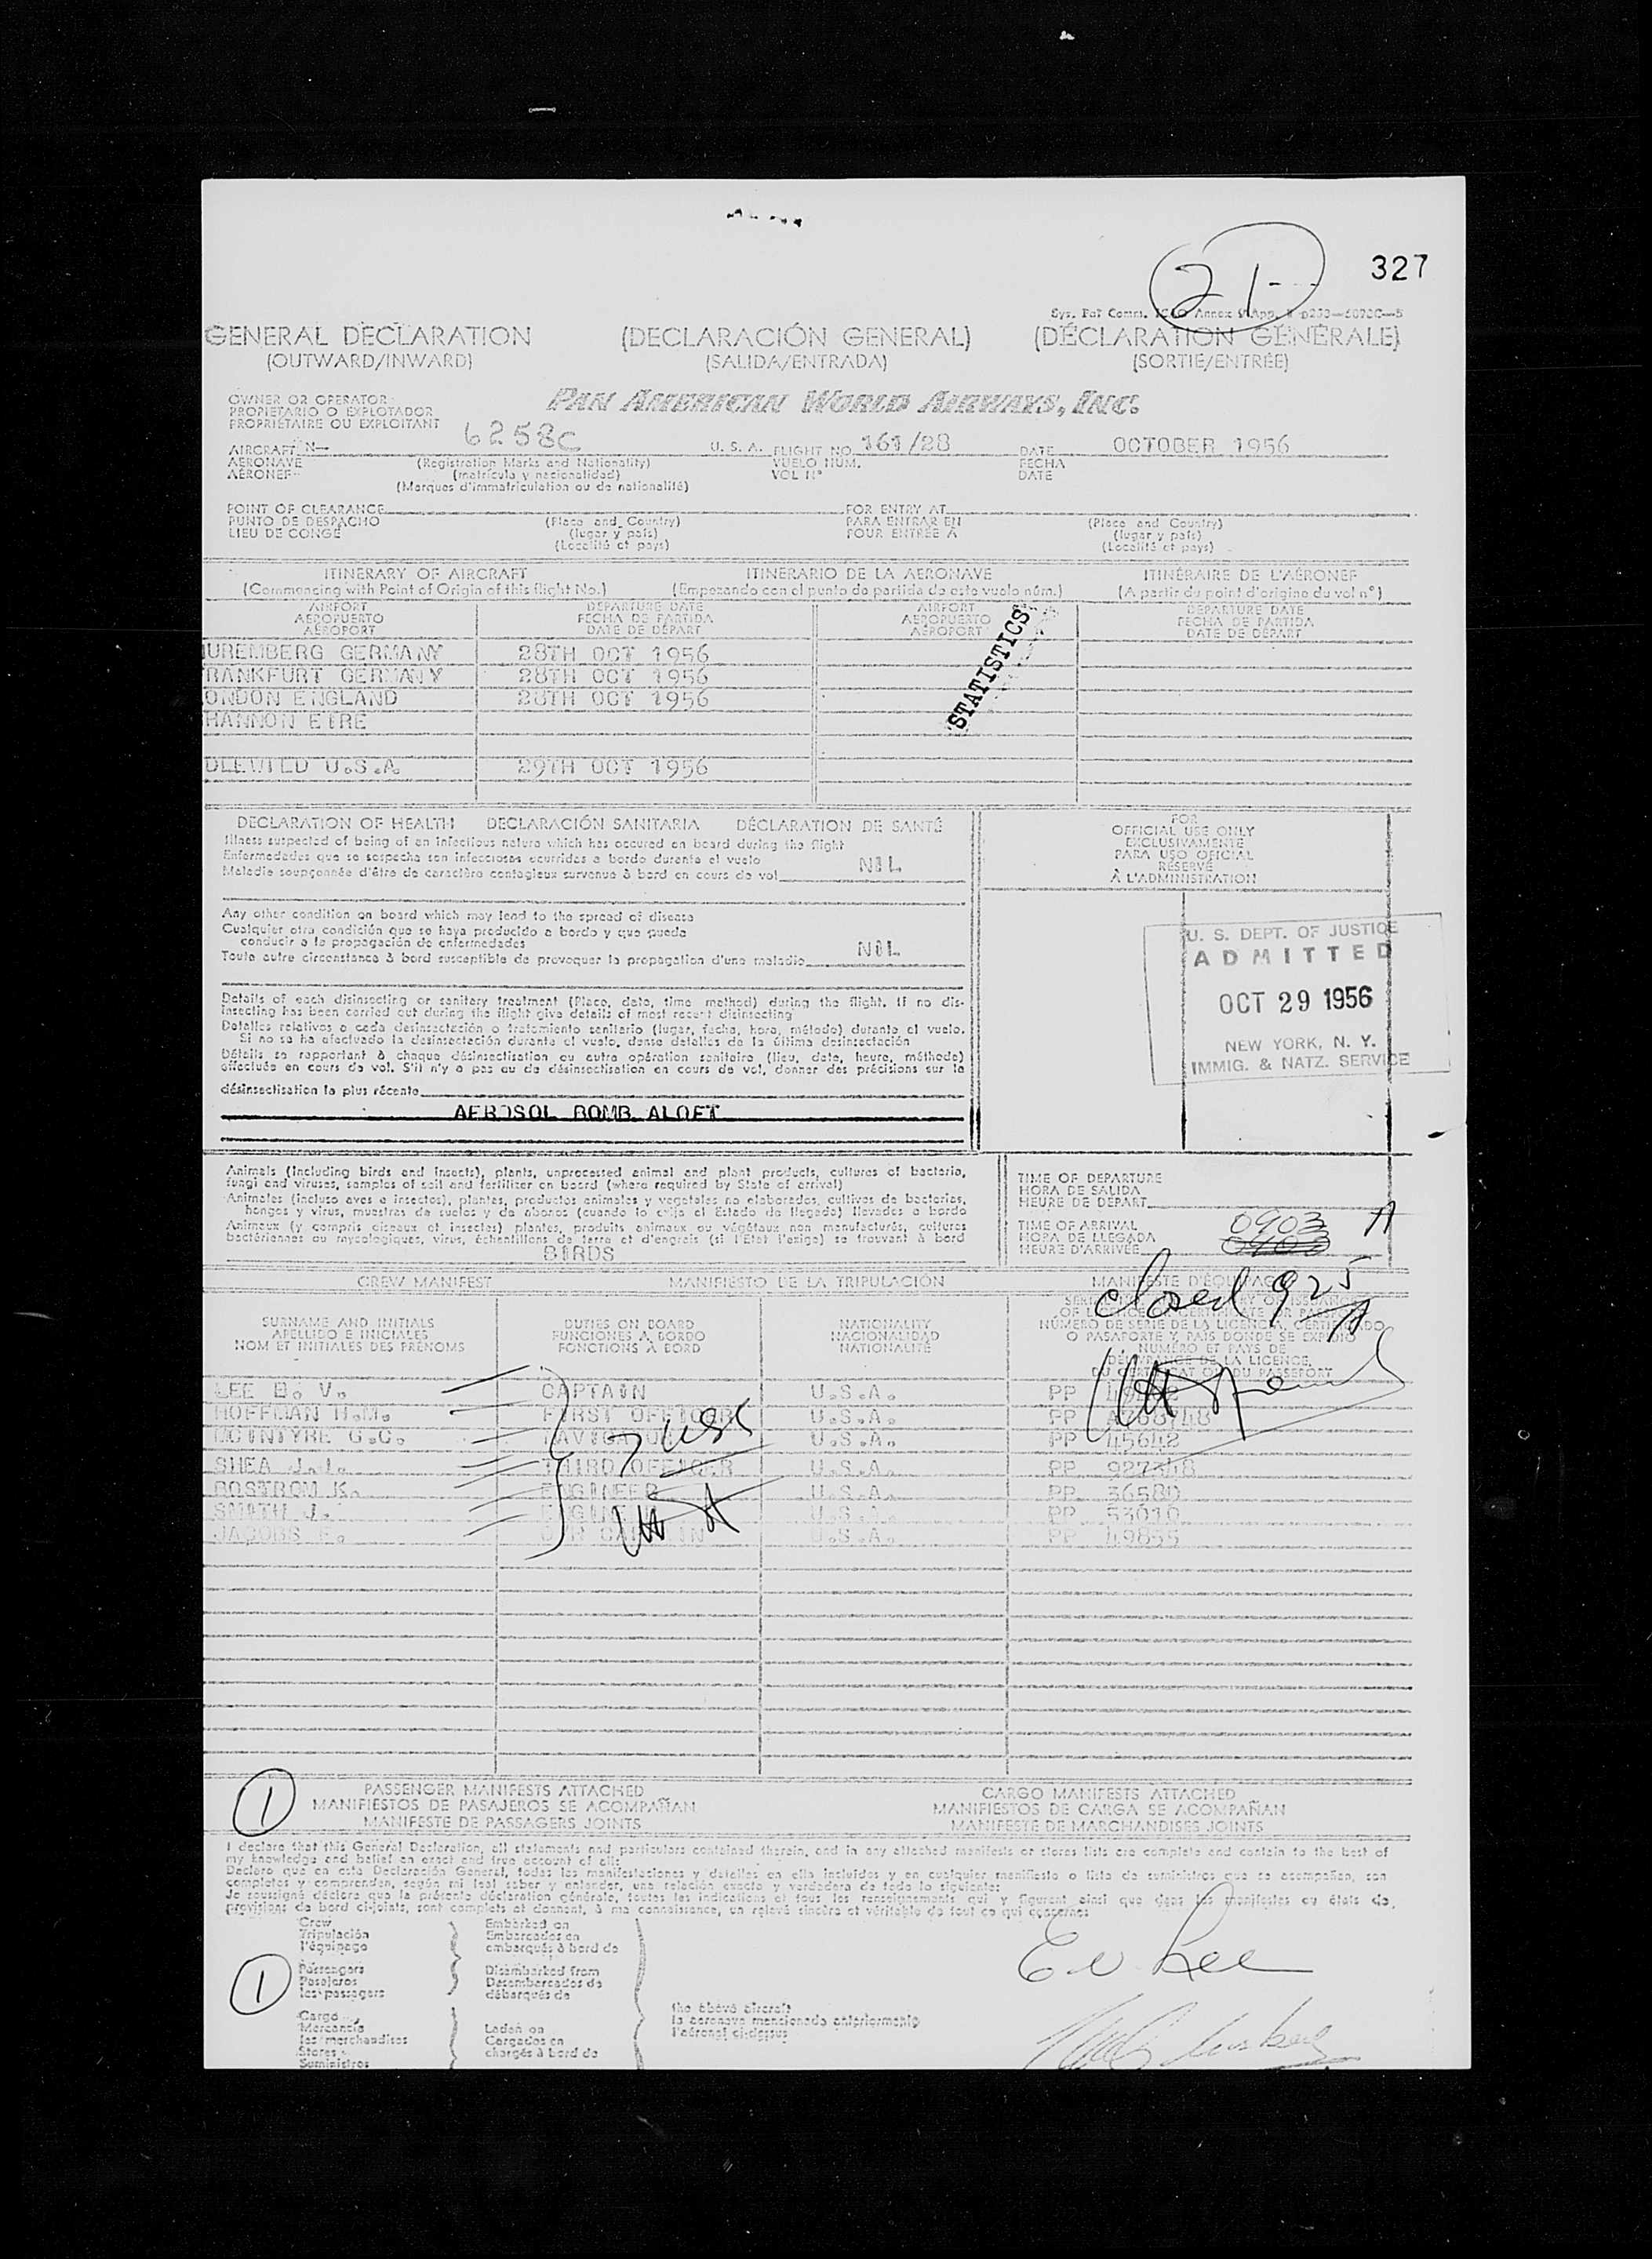 21-
327
GENERAL DECLARATION (DECLARACIÓN GENERAL) (DÉCLARATION GÉNÉRALE)
(OUTWARD/INWARD) (SALIDA/ENTRADA) (SORTIE/ENTRÉE)
OWNER OR OPERATOR
PROPIETARIO O EXPLOTADOR
PROPRIÉTAIRE OU EXPLOITANT
PAN AMERICAN WORLD AIRWAYS, INC.
AIRCRAFT N— 6258C U. S. A. FLIGHT NO. 161/28 DATE OCTOBER 1956
AERONAVE (Registration Marks and Nationality) VUELO NUM. FECHA
AÉRONEF (matrícula y nacionalidad) VOL Nº DATE
(Marques d'immatriculation ou de nationalité)
POINT OF CLEARANCE FOR ENTRY AT
PUNTO DE DESPACHO (Place and Country) PARA ENTRAR EN (Place and Country)
LIEU DE CONGÉ (lugar y país) POUR ENTRÉE À (lugar y país)
(Localité et pays) (Localité et pays)
ITINERARY OF AIRCRAFT ITINERARIO DE LA AERONAVE ITINÉRAIRE DE L'AÉRONEF
(Commencing with Point of Origin of this flight No.) (Empezando con el punto de partida de este vuelo núm.) (A partir du point d'origine du vol nº)
AIRPORT DEPARTURE DATE AIRPORT DEPARTURE DATE
AEROPUERTO FECHA DE PARTIDA AEROPUERTO FECHA DE PARTIDA
AÉROPORT DATE DE DÉPART AÉROPORT DATE DE DÉPART
STATISTICS
UREMBERG GERMANY 28TH OCT 1956
RANKFURT GERMANY 28TH OCT 1956
ONDON ENGLAND 28TH OCT 1956
HANNON EIRE
DLEWILD U.S.A. 29TH OCT 1956
DECLARATION OF HEALTH DECLARACIÓN SANITARIA DÉCLARATION DE SANTÉ
Illness suspected of being of an infectious nature which has occured on board during the flight
Enfermedades que se sospecha son infecciosas ocurridas a bordo durante el vuelo
Maladie soupçonnée d'être de caractère contagieux survenue à bord en cours de vol NIL
Any other condition on board which may lend to the spread of disease
Cualquier otra condición que se haya producido a bordo y que pueda
conducir a la propagación de enfermedades
Toute autre circonstance à bord susceptible de provoquer la propagation d'une maladie NIL
Details of each disinsecting or sanitary treatment (Place, date, time method) during the flight. If no dis-
insecting has been carried out during the flight give details of most recent disinsecting
Detalles relativos a cada desinsectación o tratamiento sanitario (lugar, fecha, hora, método) durante el vuelo.
Si no se ha efectuado la desinsectación durante el vuelo, dense detalles de la última desinsectación
Détails se rapportant à chaque désinsectisation ou autre opération sanitaire (lieu, date, heure, méthode)
effectuée en cours de vol. S'il n'y a pas eu de désinsectisation en cours de vol, donner des précisions sur la
désinsectisation la plus récente
AEROSOL BOMB ALOFT
FOR
OFFICIAL USE ONLY
EXCLUSIVAMENTE
PARA USO OFICIAL
RÉSERVÉ
À L'ADMINISTRATION
U. S. DEPT. OF JUSTICE
ADMITTED
OCT 29 1956
NEW YORK, N. Y.
IMMIG. & NATZ. SERVICE
Animals (including birds and insects), plants, unprocessed animal and plant products, cultures of bacteria,
fungi and viruses, samples of soil and fertilizer on board (where required by State of arrival)
Animales (incluso aves e insectos), plantas, productos animales y vegetales no elaborados, cultivos de bacterias,
hongos y virus, muestras de suelos y de abonos (cuando lo exija el Estado de llegada) llevados a bordo
Animaux (y compris oiseaux et insectes) plantes, produits animaux ou végétaux non manufacturés, cultures
bactériennes ou mycologiques, virus, échantillons de terre et d'engrais (si l'État l'exige) se trouvant à bord
BIRDS
TIME OF DEPARTURE
HORA DE SALIDA
HEURE DE DÉPART
TIME OF ARRIVAL
HORA DE LLEGADA
HEURE D'ARRIVÉE
0903 A
closed 925 A
CREW MANIFEST MANIFIESTO DE LA TRIPULACIÓN MANIFESTE D'ÉQUIPAGE
SURNAME AND INITIALS DUTIES ON BOARD NATIONALITY
APELLIDO E INICIALES FUNCIONES A BORDO NACIONALIDAD
NOM ET INITIALES DES PRÉNOMS FONCTIONS À BORD NATIONALITÉ
NÚMERO DE SERIE DE LA LICENCIA, CERTIFICADO
O PASAPORTE Y PAÍS DONDE SE EXPIDIÓ
NUMÉRO ET PAYS DE
DÉLIVRANCE DE LA LICENCE,
DU CERTIFICAT OU DU PASSEPORT
LEE E. V. CAPTAIN U.S.A. PP
HOFFMAN H.M. FIRST OFFICER U.S.A. PP
MCINTYRE G.C. NAVIGATOR U.S.A. PP 45642
SHEA J.I. THIRD OFFICER U.S.A. PP 927348
BOSTROM K. ENGINEER U.S.A. PP 36580
SMITH J. ENGINEER U.S.A. PP 53010
JACOBS E. U.S.A. PP 49855
7 USC
1 PASSENGER MANIFESTS ATTACHED CARGO MANIFESTS ATTACHED
MANIFIESTOS DE PASAJEROS SE ACOMPAÑAN MANIFIESTOS DE CARGA SE ACOMPAÑAN
MANIFESTE DE PASSAGERS JOINTS MANIFESTE DE MARCHANDISES JOINTS
I declare that this General Declaration, all statements and particulars contained therein, and in any attached manifests or stores lists are complete and contain to the best of
my knowledge and belief an exact and true account of all:
Declaro que en esta Declaración General, todas las manifestaciones y detalles en ella incluidos y en cualquier manifiesto o lista de suministros que se acompañan, son
completos y comprenden, según mi leal saber y entender, una relación exacta y verdadera de todo lo siguiente:
Je soussigné déclare que la présente déclaration générale, toutes les indications et tous les renseignements qui y figurent ainsi que dans les manifestes ou états de
provisions de bord ci-joints, sont complets et donnent, à ma connaissance, un relevé sincère et véritable de tout ce qui concerne:
Crew Embarked on
Tripulación Embarcados en
l'équipage embarqués à bord de
1 Passengers Disembarked from
Pasajeros Desembarcados de
les passagers débarqués de
the above aircraft
la aeronave mencionada anteriormente
l'aéronef ci-dessus
Cargo
Mercancía Laden on
les marchandises Cargados en
Stores chargés à bord de
Suministros
E V Lee